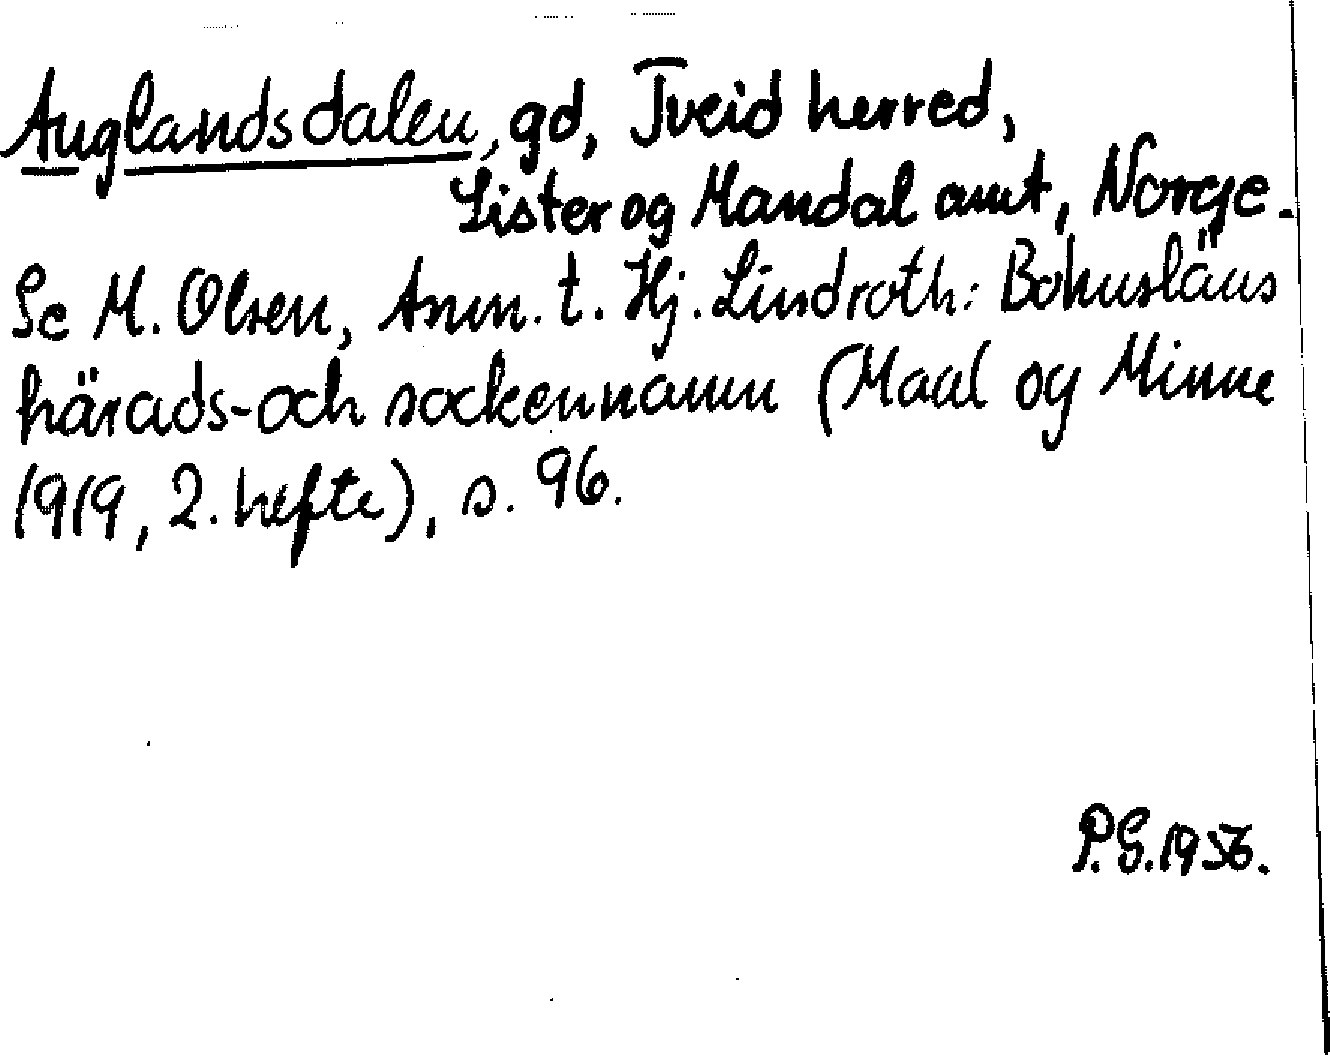 Auglandsdalen, gd, Tveid herred,
Lister og Mandal amt, Norge.
Se M. Olsen, Anm. t. Hj. Lindroth: Bohusläns
härads- och sockennamn (Maal og Minne
1919, 2. hefte), s. 96.
P.G. 1956.